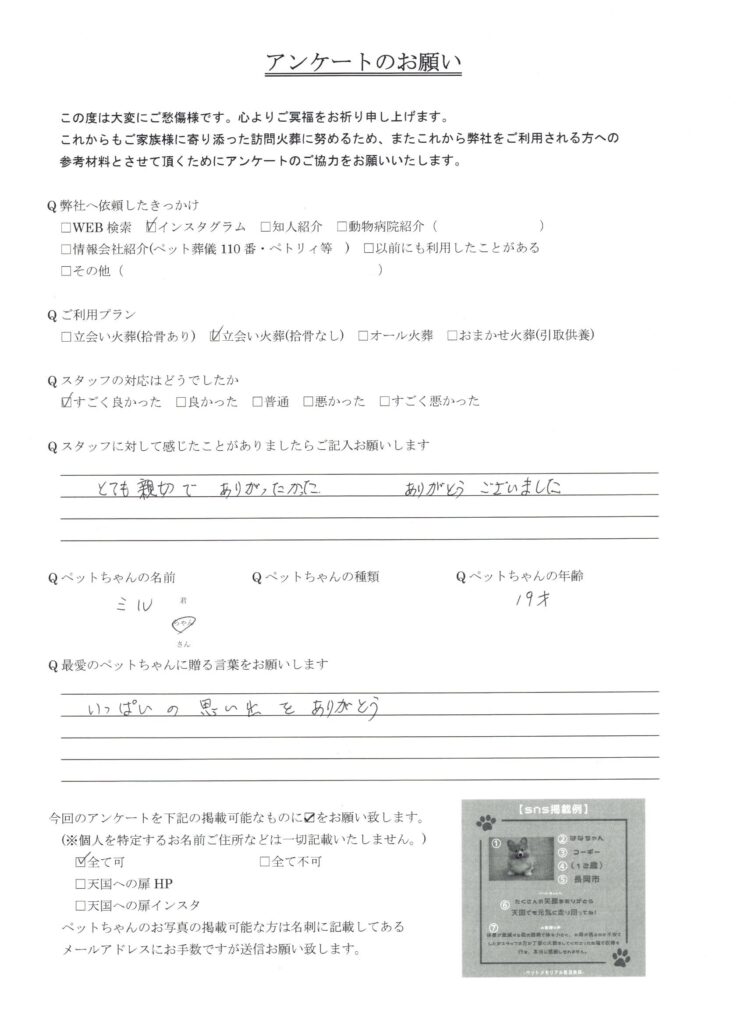 アンケートのお願い
この度は大変にご愁傷様です。心よりご冥福をお祈り申し上げます。
これからもご家族様に寄り添った訪問火葬に努めるため、またこれから弊社をご利用される方への
参考材料とさせて頂くためにアンケートのご協力をお願いいたします。
Q 弊社へ依頼したきっかけ
□WEB 検索 ☑インスタグラム □知人紹介 □動物病院紹介（ ）
□情報会社紹介(ペット葬儀 110 番・ペトリィ等 ) □以前にも利用したことがある
□その他（ ）
Q ご利用プラン
□立会い火葬(拾骨あり) ☑立会い火葬(拾骨なし) □オール火葬 □おまかせ火葬(引取供養)
Q スタッフの対応はどうでしたか
☑すごく良かった □良かった □普通 □悪かった □すごく悪かった
Q スタッフに対して感じたことがありましたらご記入お願いします
とても親切で ありがたかった ありがとう ございました
Q ペットちゃんの名前 Q ペットちゃんの種類 Q ペットちゃんの年齢
ミル 君 ちゃん さん 19才
Q 最愛のペットちゃんに贈る言葉をお願いします
いっぱいの思い出をありがとう
今回のアンケートを下記の掲載可能なものに☑をお願い致します。
(※個人を特定するお名前ご住所などは一切記載いたしません。)
☑全て可 □全て不可
□天国への扉 HP
□天国への扉インスタ
ペットちゃんのお写真の掲載可能な方は名刺に記載してある
メールアドレスにお手数ですが送信お願い致します。
【sns掲載例】
① ② はなちゃん
③ コーギー
④ (12歳)
⑤ 長岡市
⑥ たくさんの笑顔をありがとう
天国でも元気に走り回ってね!
⑦